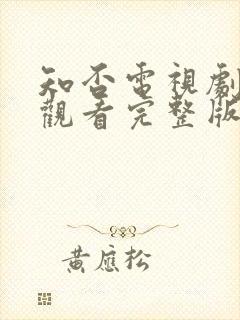 知否電視劇
觀看完整版
黃應松